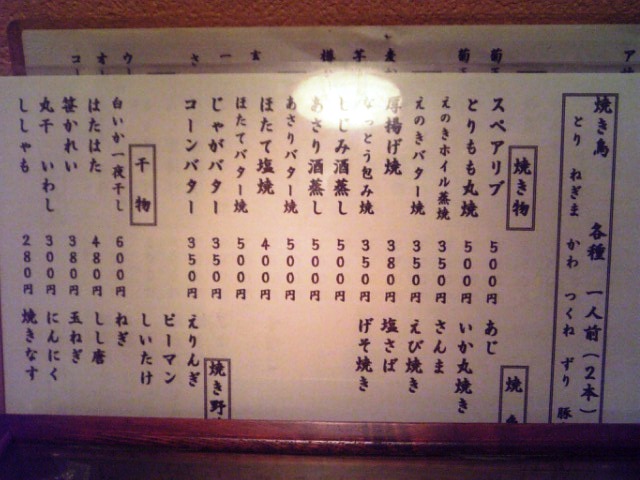 焼き鳥 各種 一人前(2本)
とり ねぎま かわ つくね ずり 豚
焼き物
スペアリブ 500円
とりもも丸焼 500円
えのきホイル蒸焼 350円
えのきバター焼 350円
厚揚げ焼 380円
なっとう包み焼 350円
しじみ酒蒸し 500円
あさり酒蒸し 500円
あさりバター焼 500円
ほたて塩焼 400円
ほたてバター焼 500円
じゃがバター 350円
コーンバター 350円
干物
白いか一夜干し 600円
はたはた 480円
笹かれい 380円
丸干 いわし 300円
ししゃも 280円
焼
あじ
いか丸焼き
さんま
えび焼き
塩さば
げそ焼き
焼き野
えりんぎ
ピーマン
しいたけ
ねぎ
しし唐
玉ねぎ
にんにく
焼きなす